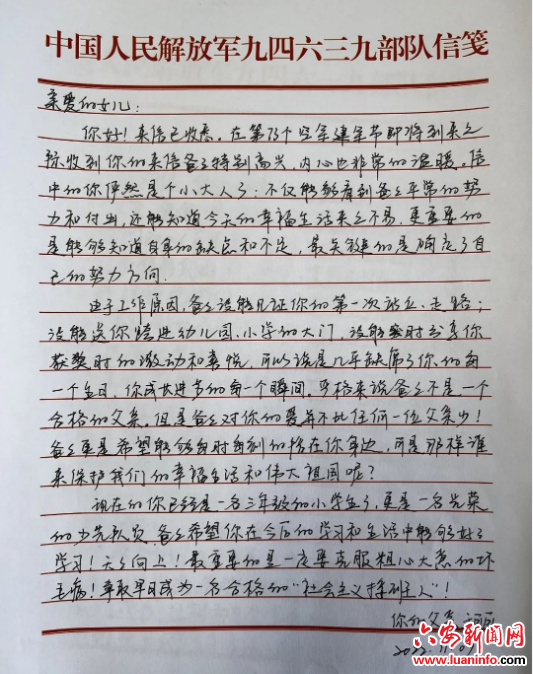 中国人民解放军九四六三九部队信笺
亲爱的女儿：
你好！来信已收悉，在第73个空军建军节即将到来之
际收到你的来信爸爸特别高兴，内心也非常的温暖，信
中的你俨然是个小大人了：不仅能够看到爸爸平常的努
力和付出，还能够知道今天的幸福生活来之不易，更重要的
是能够知道自身的缺点和不足，最关键的是确定了自
己的努力方向.
由于工作原因，爸爸没能见证你的第一次站立、走路；
没能送你跨进幼儿园、小学的大门，没能实时分享你
获奖时的激动和喜悦，可以说是几乎缺席了你的每
一个生日，你成长进步的每一个瞬间，严格来说爸爸不是一个
合格的父亲，但是爸爸对你的爱并不比任何一位父亲少！
爸爸更是希望能够每时每刻的陪在你身边，可是那样谁
来保护我们的幸福生活和伟大祖国呢？
现在的你已经是一名三年级的小学生了，更是一名光荣
的少先队员，爸爸希望你在今后的学习和生活中能够好好
学习！天天向上！最重要的是一定要克服粗心大意的坏
毛病！争取早日成为一名合格的“社会主义接班人”！
你的父亲
2022.11.07
六安新闻网
www.luaninfo.com